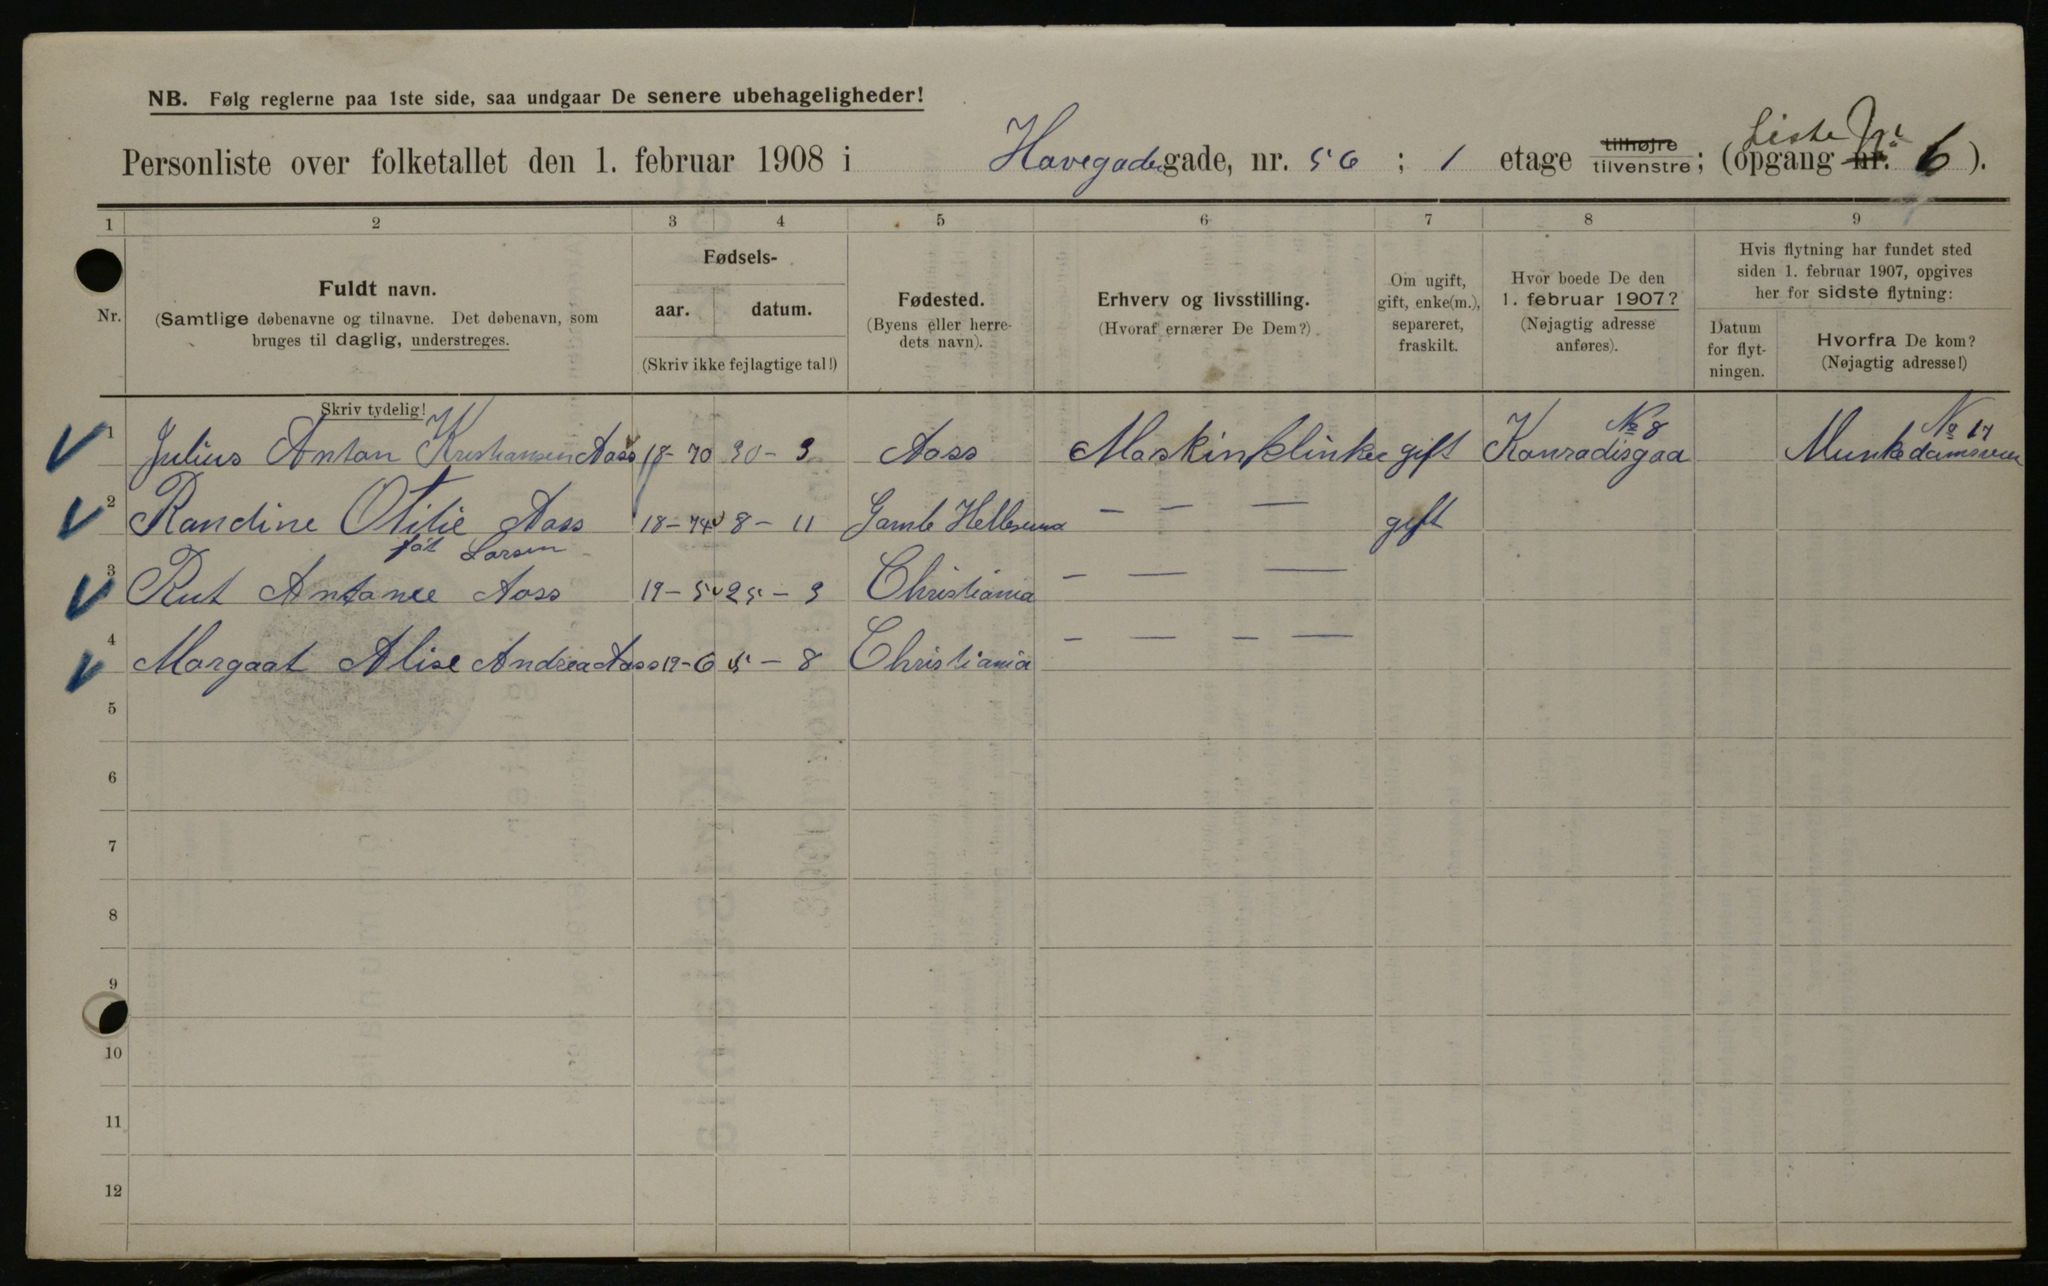 NB. Følg reglerne paa 1ste side, saa undgaar De senere ubehageligheder!
Liste Nr.
Personliste over folketallet den 1. februar 1908 i Havegade gade, nr. 56 ; 1 etage tilhøjre tilvenstre ; (opgang nr. 6 ).
1 2 3 4 5 6 7 8 9
Nr.
Fuldt navn.
(Samtlige døbenavne og tilnavne. Det døbenavn, som
bruges til daglig, understreges.
Skriv tydelig!
Fødsels-
aar. datum.
(Skriv ikke fejlagtige tal!)
Fødested.
(Byens eller herre-
dets navn).
Erhverv og livsstilling.
(Hvoraf ernærer De Dem?)
Om ugift,
gift, enke(m.),
separeret,
fraskilt.
Hvor boede De den
1. februar 1907?
(Nøjagtig adresse
anføres).
Hvis flytning har fundet sted
siden 1. februar 1907, opgives
her for sidste flytning:
Datum
for flyt-
ningen.
Hvorfra De kom?
(Nøjagtig adresse!)
1 Julius Anton Kristiansen Aass 18-70 30-3 Aass Maskinklinker gift Konradisgaa No 8 Munkedamsveien No 17
2 Randine Otilie Aass 18-74 8-11 Gamle Hellesund — — — gift
føt Larsen
3 Rut Antonee Aass 19-5 25-3 Christiania — — —
4 Margaat Alise Andrea Aass 19-6 5-8 Christiania — — — —
5
6
7
8
9
10
11
12